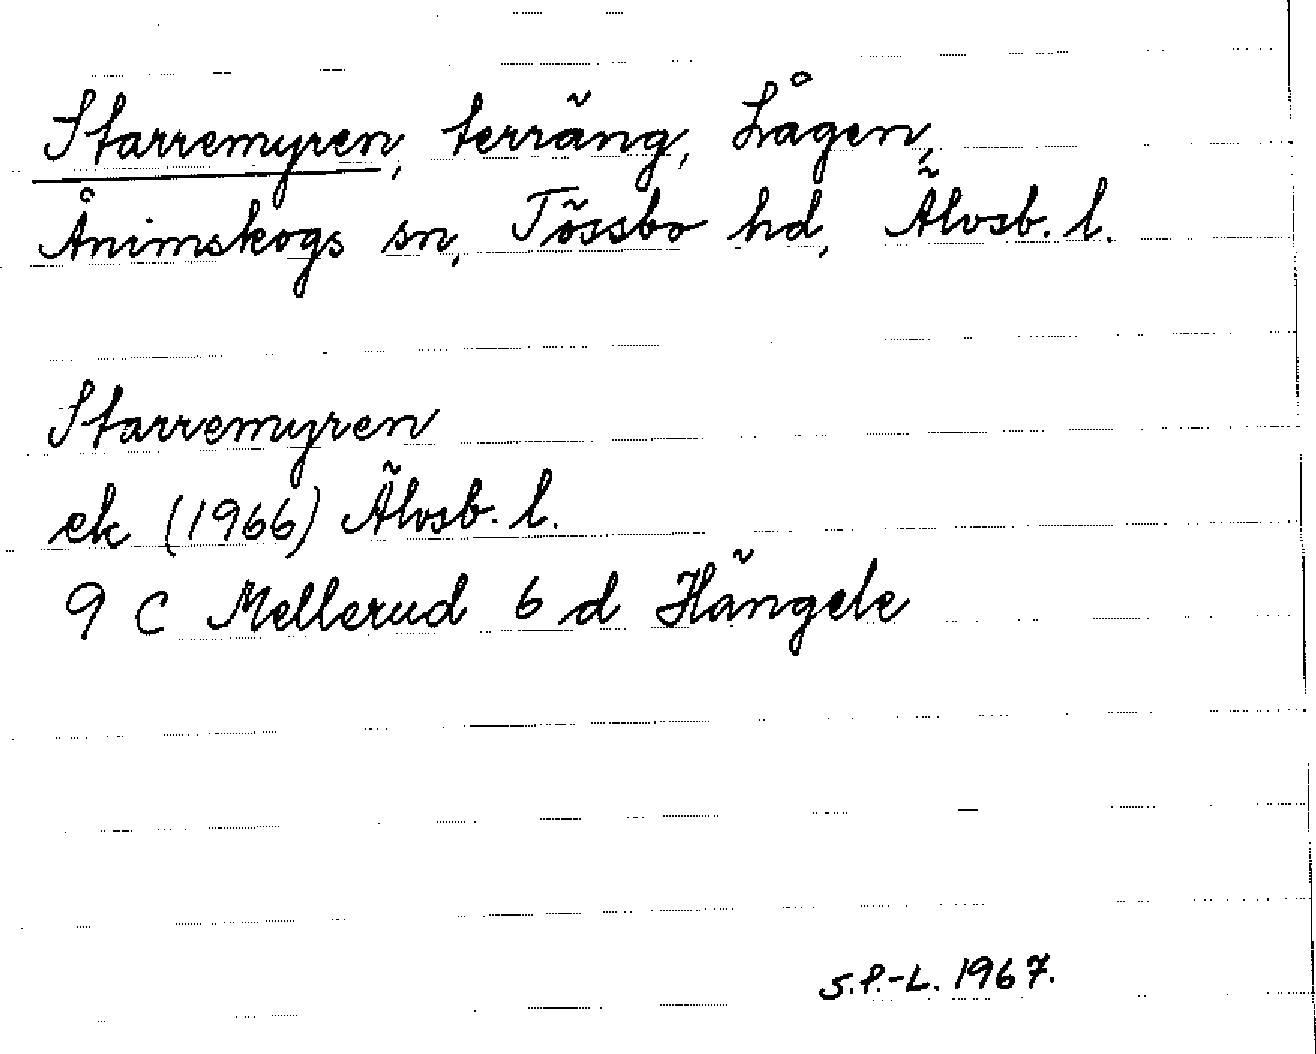 Starremyren, terräng, Lågen,
Ånimskogs sn, Tössbo hd, Älvsb. l.
Starremyren
ek (1966) Älvsb. l.
9 C Mellerud 6 d Hängele
S.P.-L. 1967.